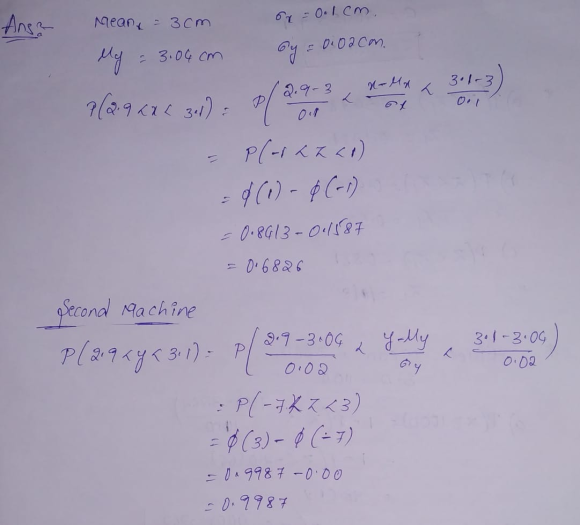 Ans: Meanx = 3cm σx = 0.1cm.
μy = 3.04cm σy = 0.02cm.
P(2.9<x< 3.1) = P((2.9-3)/0.1 < (x-μx)/σx < (3.1-3)/0.1)
= P(-1<z<1)
= ϕ(1) - ϕ(-1)
= 0.8413-0.1587
= 0.6826
Second Machine
P(2.9<y<3.1) = P((2.9-3.04)/0.02 < (y-μy)/σy < (3.1-3.04)/0.02)
= P(-7<z<3)
= ϕ(3) - ϕ(-7)
= 0.9987-0.00
= 0.9987